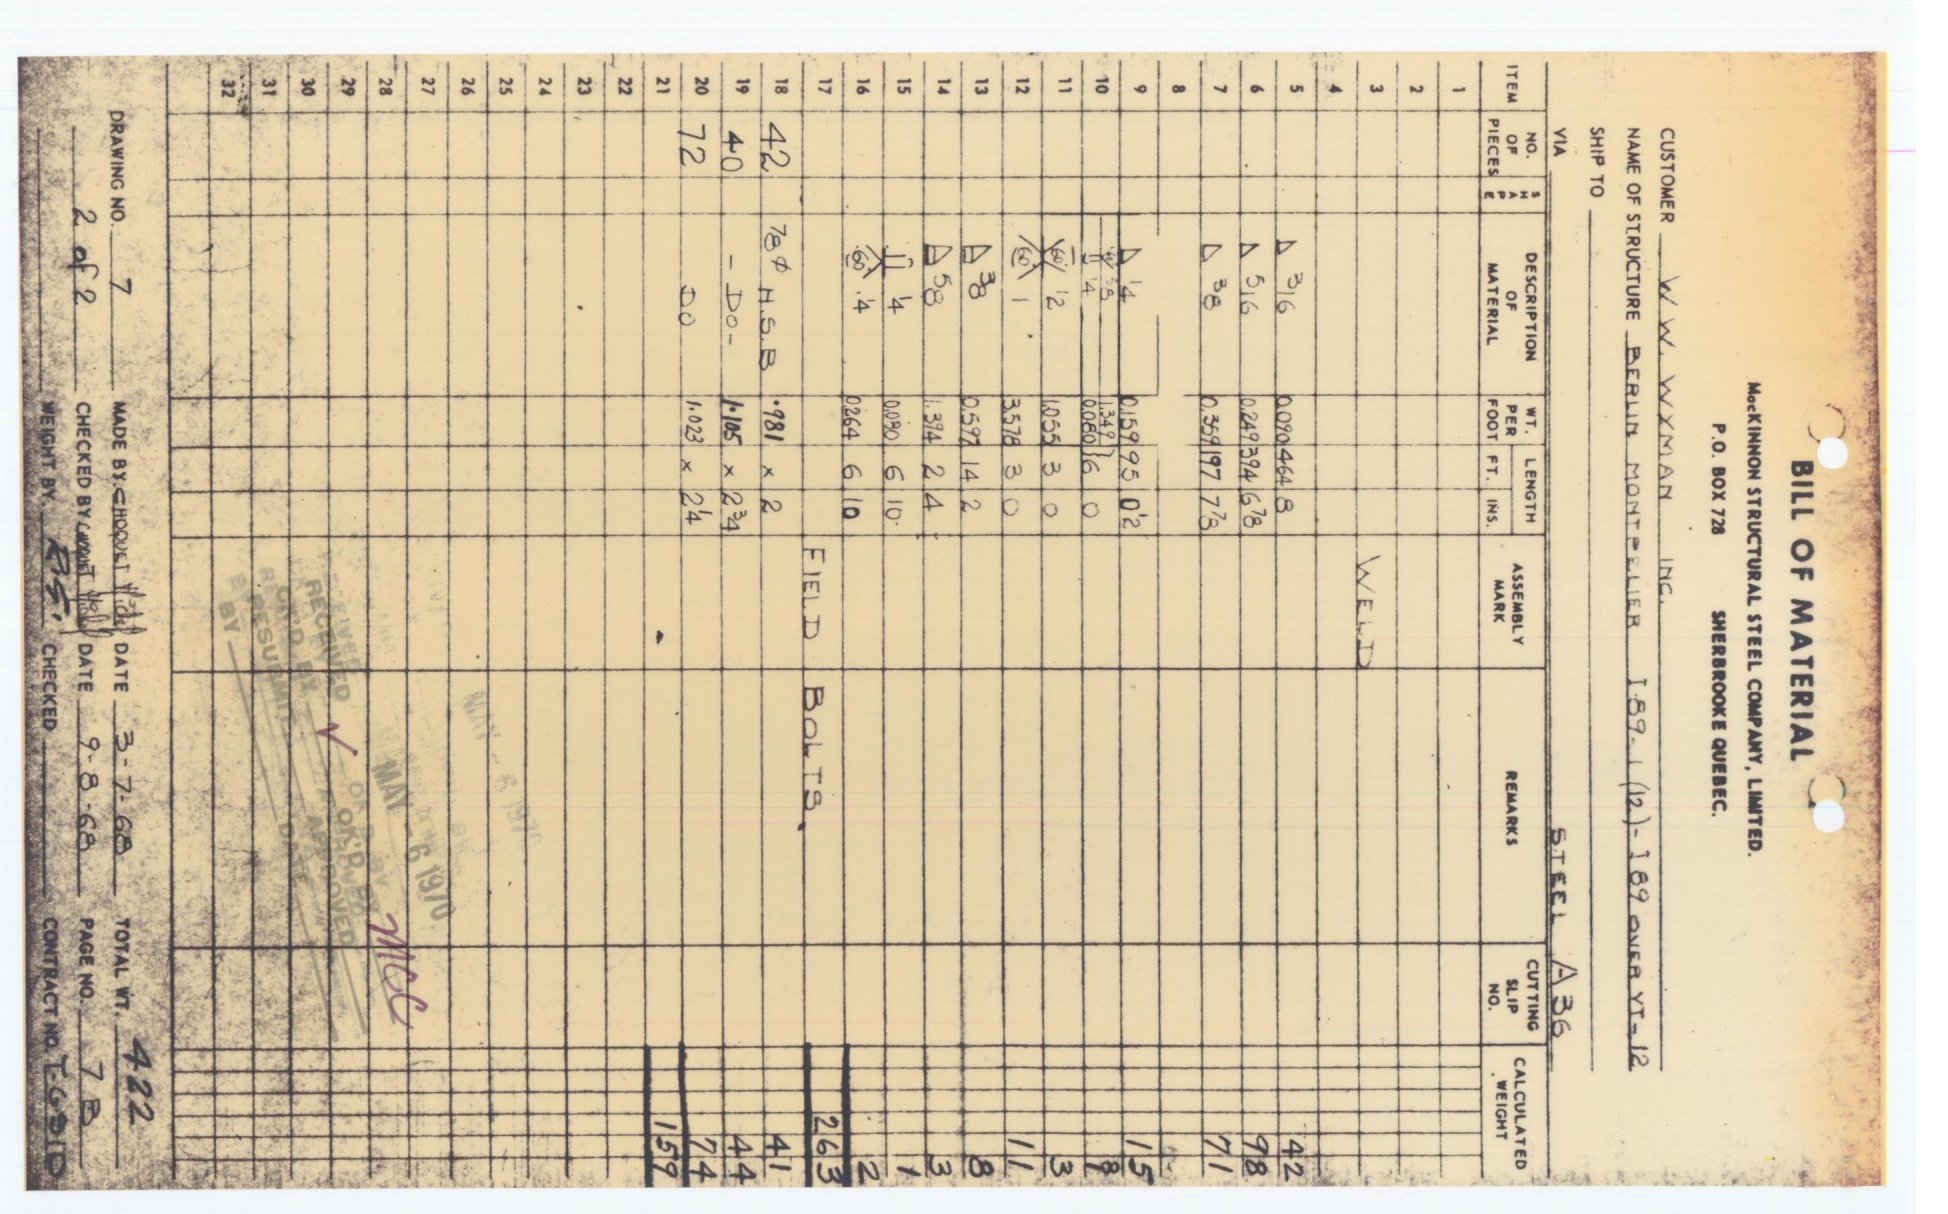 BILL OF MATERIAL
MacKINNON STRUCTURAL STEEL COMPANY, LIMITED.
P.O. BOX 728 SHERBROOKE QUEBEC.
CUSTOMER W W. WYMAN INC.
NAME OF STRUCTURE BERLIN MONTPELIER I 89-1(12)-I 89 OVER VT-12
SHIP TO
VIA STEEL A36
ITEM NO. OF PIECES SHAPE DESCRIPTION OF MATERIAL WT. PER FOOT LENGTH FT. INS. ASSEMBLY MARK REMARKS CUTTING SLIP NO. CALCULATED WEIGHT
1
2
3 WELD
4
5 3/16 0.090 464 8 42
6 5/16 0.249 394 6 7/8 98
7 3/8 0.359 197 7 7/8 71
8
9 1/4 0.159 95 0 1/2 15
10 60° 5/8 1.349
1/4 0.080 6 0 8
11 60° 1/2 1.055 3 0 3
12 60° 1 3.578 3 0 11
13 3/8 0.597 14 2 8
14 5/8 1.394 2 4 3
15 1/4 0.090 6 10 1
16 60° 1/4 0.264 6 10 2
17 FIELD BOLTS. 263
18 42 7/8 φ H.S.B .981 x 2 41
19 40 - DO - 1.105 x 2 3/4 44
20 72 DO 1.023 x 2 1/4 74
21 159
22
23
24
25
26
27
28
29
30
31
32
MAY - 6 1970
MAY - 6 1970
RECEIVED
OK'D BY OK'D BY MCC
RESUBMIT APPROVED
BY DATE
DRAWING NO. 7 MADE BY CHOQUET DATE 3-7-68 TOTAL WT. 422
2 of 2 CHECKED BY DATE 9-8-68 PAGE NO. 7 B
WEIGHT BY R.S. CHECKED CONTRACT NO.